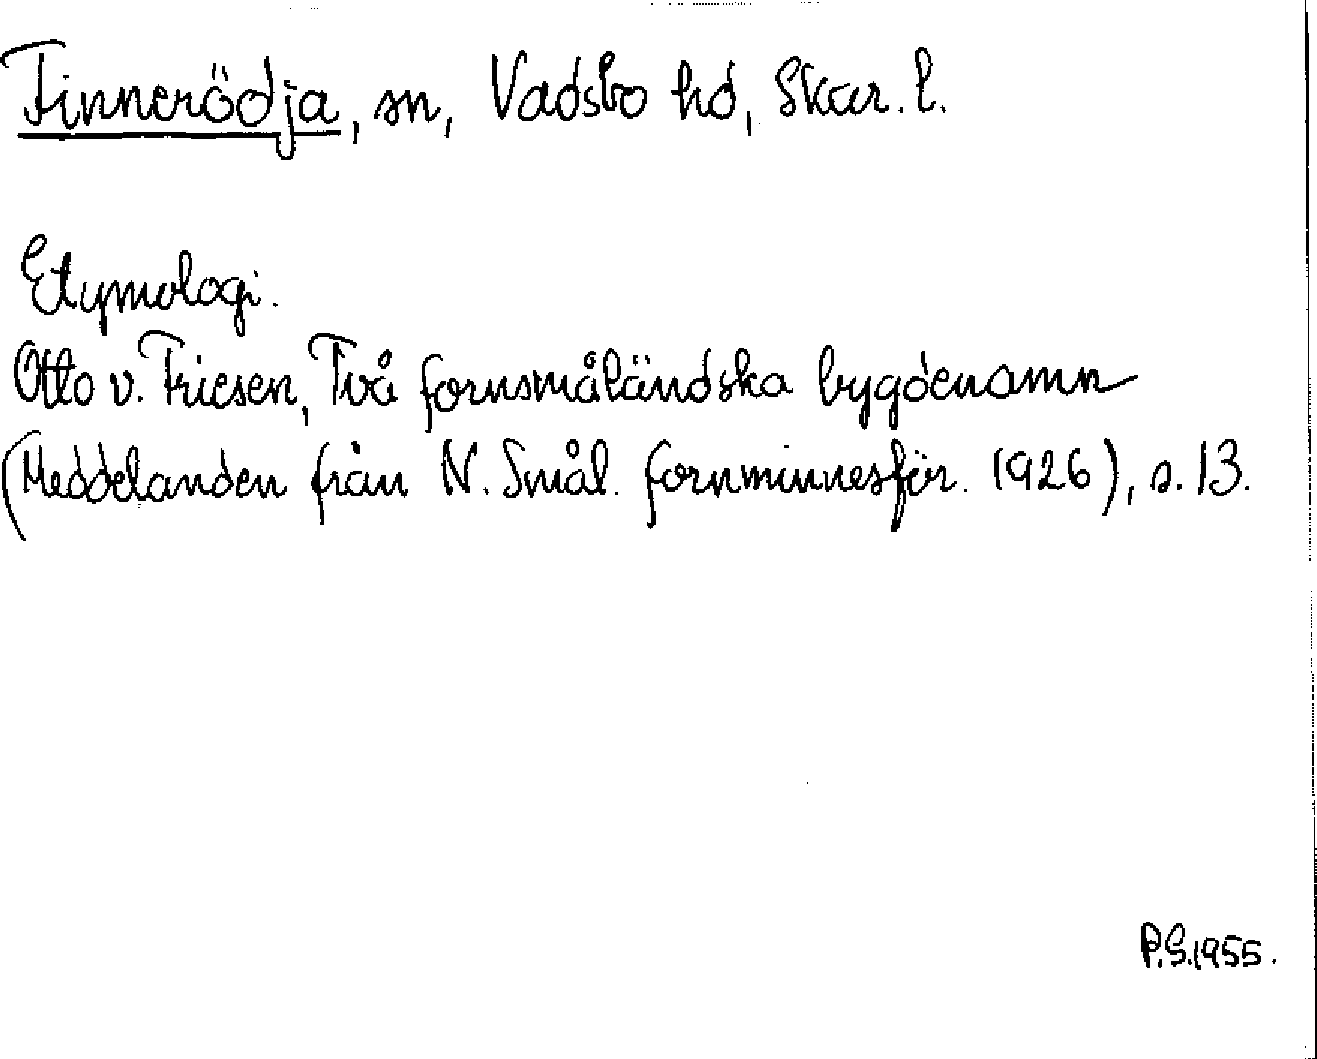 Finnerödja, sn, Vadsbo hd, Skar. l.
Etymologi.
Otto v. Friesen, Två fornsmåländska bygdenamn
(Meddelanden från N. Smål. fornminnesför. 1926), s. 13.
P.S. 1955.